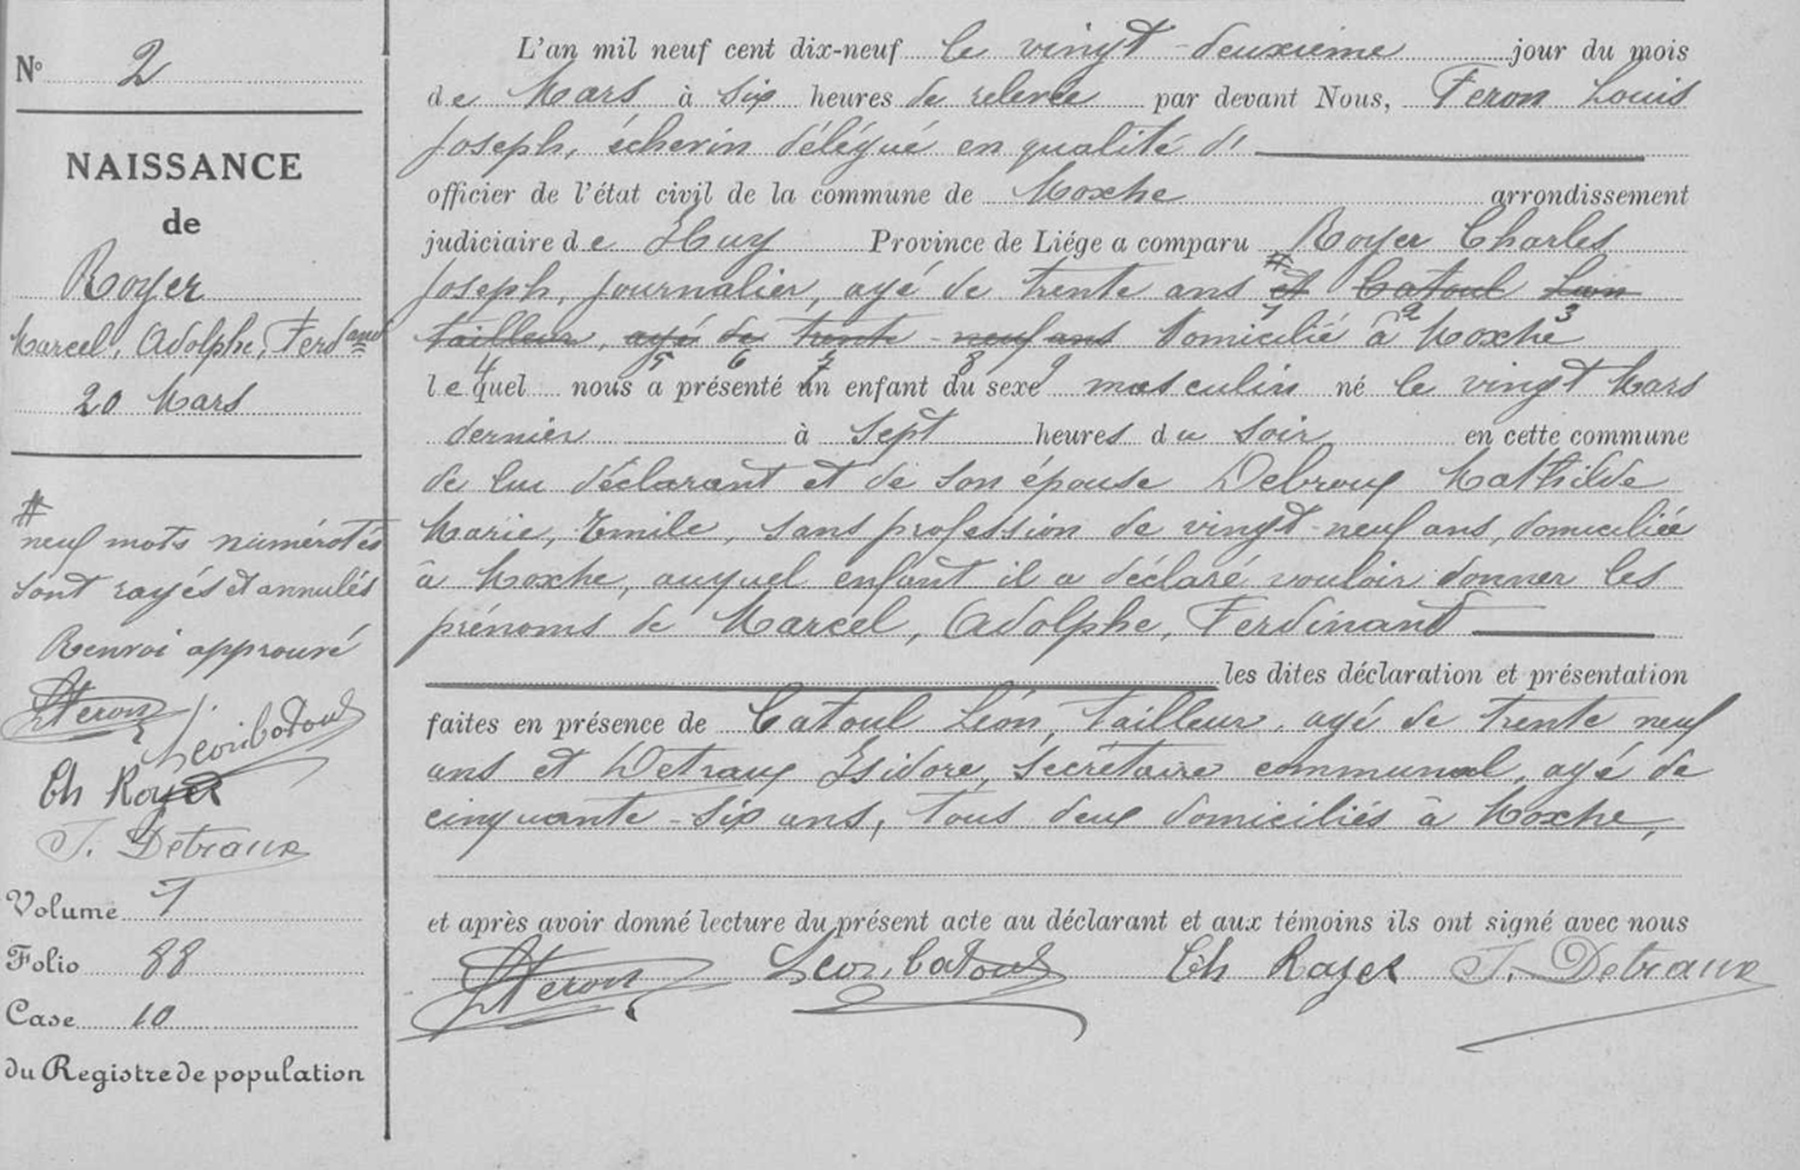 N° 2
NAISSANCE
de
Royer
Marcel, Adolphe, Ferdand
20 Mars
#
neuf mots numérotés
sont rayés et annulés
Renvoi approuvé
LFeron
Leon Catoul
Ch Royer
I. Detraux
Volume 1
Folio 88
Case 10
du Registre de population
L'an mil neuf cent dix-neuf le vingt-deuxième jour du mois
de Mars à six heures de relevée par devant Nous, Feron Louis
Joseph, échevin délégué en qualité d'
officier de l'état civil de la commune de Moxhe arrondissement
judiciaire de Huy Province de Liége a comparu Royer Charles
Joseph, journalier, agé de trente ans # et Catoul Léon
tailleur, agé de trente-neuf ans domicilié à Moxhe
1 2 3
4 5 6 7 8 9
lequel nous a présenté un enfant du sexe masculin né le vingt Mars
dernier à sept heures du soir en cette commune
de lui déclarant et de son épouse Debroux Mathilde
Marie, Emile, sans profession de vingt-neuf ans, domiciliée
à Moxhe, auquel enfant il a déclaré vouloir donner les
prénoms de Marcel, Adolphe, Ferdinand
les dites déclaration et présentation
faites en présence de Catoul Léon, tailleur, agé de trente neuf
ans et Detraux Isidore, secrétaire communal, agé de
cinquante-six ans, tous deux domiciliés à Moxhe,
et après avoir donné lecture du présent acte au déclarant et aux témoins ils ont signé avec nous
LFeron Leon Catoul Ch Royer I. Detraux